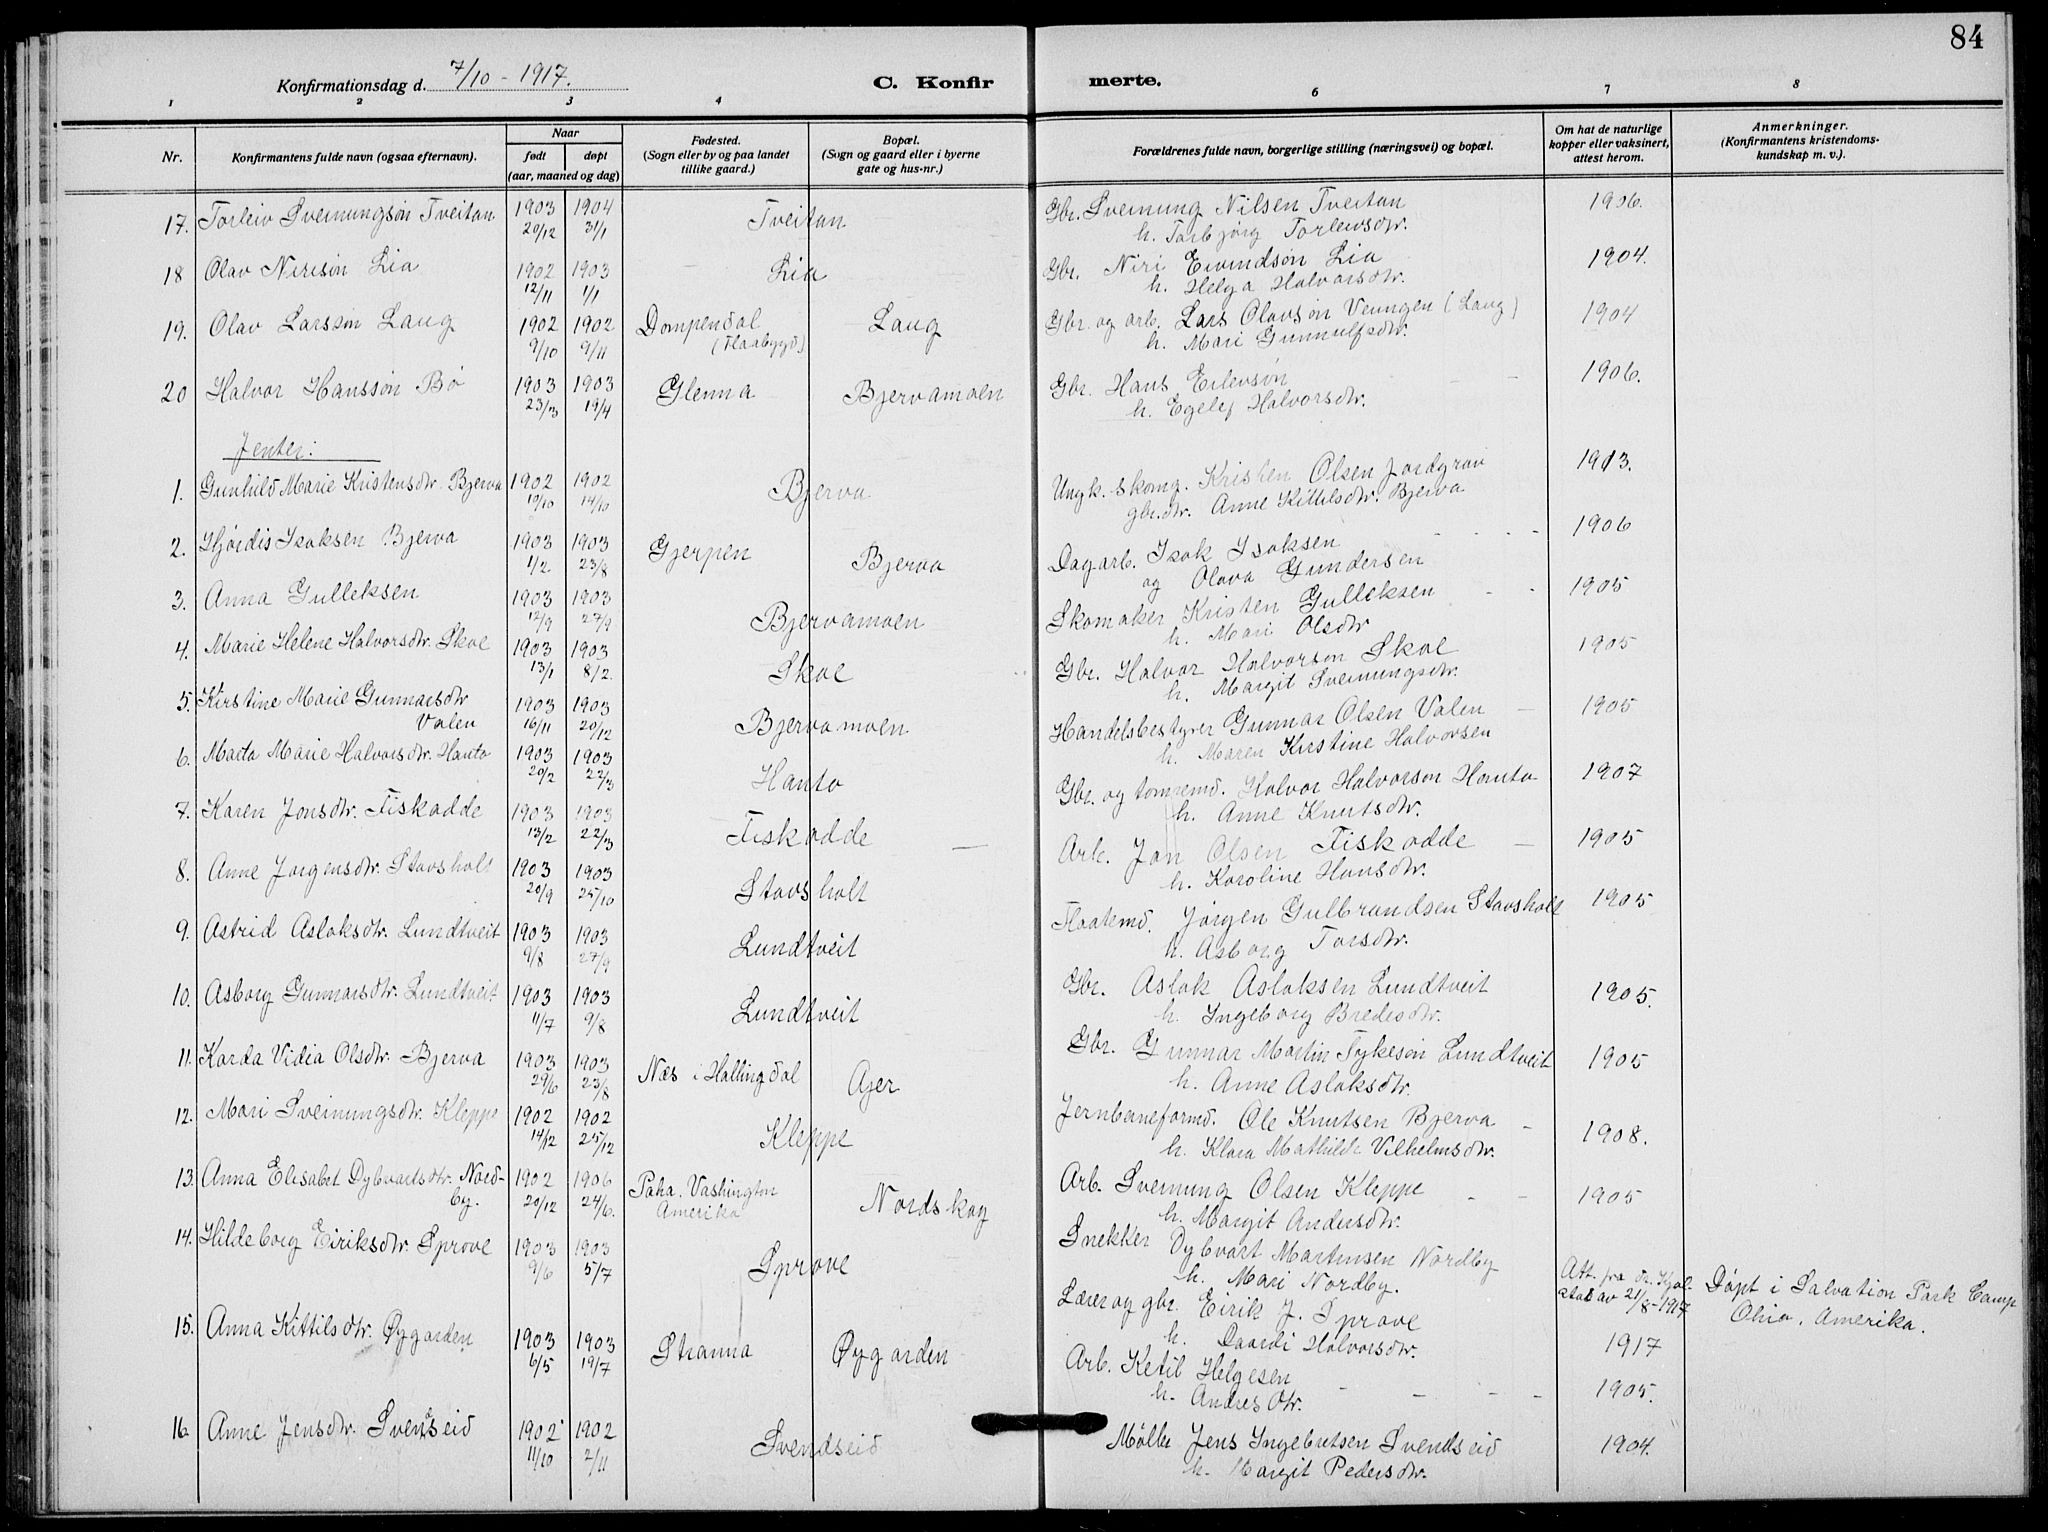 84
Konfirmationsdag d. 7/10 - 1917.
C. Konfirmerte.
1 2 3 4 6 7 8
Nr.
Konfirmantens fulde navn (ogsaa efternavn).
Naar
født døpt
(aar, maaned og dag)
Fødested.
(Sogn eller by og paa landet
tillike gaard.)
Bopæl.
(Sogn og gaard eller i byerne
gate og hus-nr.)
Forældrenes fulde navn, borgerlige stilling (næringsvei) og bopæl.
Om hat de naturlige
kopper eller vaksinert,
attest herom.
Anmerkninger.
(Konfirmantens kristendoms-
kundskap m. v.).
17. Torleiv Sveinungsøn Tveitan 1903 20/12 1904 31/1 Tveitan Gbr. Sveinung Nilsen Tveitan 1906.
h. Torbjørg Torleivsdtr.
18 Olav Nirisøn Lia 1902 12/11 1903 1/1 Lia Gbr. Niri Eivindsøn Lia 1904.
h. Helga Halvorsdtr.
19. Olav Larssøn Laug 1902 9/10 1902 9/11 Dompendal (Flaabygd) Laug Gbr. og arb. Lars Olavsøn Veungen (Laug) 1904
h. Mari Gunnulfsdtr.
20 Halvor Hanssøn Bø 1903 23/3 1903 19/4 Glenna Bjervamoen Gbr. Hans Eilevsøn 1906.
h. Egelef Halvorsdtr.
Jenter:
1. Gunhild Marie Kristensdtr. Bjerva 1902 10/10 1902 14/10 Bjerva Ungk. skomg. Kristen Olsen Jordgrav 1913.
gbr.dtr. Anne Kittilsdtr. Bjerva
2. Hjørdis Isaksen Bjerva 1903 1/2 1903 23/8 Gjerpen Bjerva Dagarb. Isak Isaksen 1906
og Olava Gundersen
3. Anna Gulleksen 1903 12/9 1903 27/9 Bjervamoen Skomaker Kristen Gulleksen 1905
h. Mari Olsdtr
4. Marie Helene Halvorsdtr. Skoe 1903 13/1 1903 8/2. Skoe Gbr. Halvor Halvorson Skoe 1905
h. Margit Sveinungsdtr.
5. Kirstine Marie Gunnarsdtr
Valen 1903 16/11 1903 20/12 Bjervamoen Handelsbestyrer Gunnar Olsen Valen 1905
h. Maren Kirstine Halvorsen
6. Marta Marie Halvorsdtr. Hanto 1903 20/2 1903 22/3 Hanto Gbr. og tømremd. Halvor Halvorson Hanto 1907
h. Anne Knutsdtr.
7. Karen Jonsdtr. Fiskodde 1903 13/2 1903 22/3 Fiskodde Arb. Jon Olsen Fiskodde 1905
h. Karoline Hansdtr.
8. Anne Jørgensdtr. Stavsholt 1903 20/9 1903 25/10 Stavsholt Flaatemd. Jørgen Gulbrandsen Stavsholt 1905
h. Asborg Torsdtr.
9. Astrid Aslaksdtr. Lundtveit 1903 9/8 1903 27/9 Lundtveit Gbr. Aslak Aslaksen Lundtveit 1905.
h. Ingeborg Bredesdtr.
10. Asborg Gunnarsdtr. Lundtveit 1903 11/7 1903 9/8 Lundtveit Gbr. Gunnar Martin Tykesøn Lundtveit 1905
h. Anne Aslaksdtr.
11. Karda Vidia Olsdtr. Bjerva 1903 29/6 1903 23/8 Næs i Hallingdal Ajer Jernbaneformd. Ole Knutsen Bjerva 1908.
h. Klara Mathilde Vilhelmsdtr.
12. Mari Sveinungsdtr. Kleppe 1902 14/12 1902 25/12 Kleppe Arb. Sveinung Olsen Kleppe 1905
h. Margit Andersdtr.
13. Anna Elisabet Dybvartsdtr. Nord-
by. 1902 20/12 1906 24/6. Paha. Vashington
Amerika Nordskog Snekker Dybvart Martinsen Nordby Att. fra dr. Kjøl-
h. Mari Nordby. av 21/8-1917 Døpt i Salvation Park Camp
Ohio, Amerika.
14. Hildeborg Eiriksdtr. Sprove 1903 9/6 1903 5/7 Sprove Lærer og gbr. Eirik J. Sprove 1917
h. Daardi Halvorsdtr.
15. Anna Kittilsdtr. Øygarden 1903 6/5 1903 19/7 Stranna Øygarden Arb. Ketil Helgesen 1905.
h. Andresdtr.
16 Anne Jensdtr. Svendseid 1902 11/10 1902 2/11 Svendseid Møller Jens Ingebretsen Svendseid 1904.
h. Margit Pedersdtr.